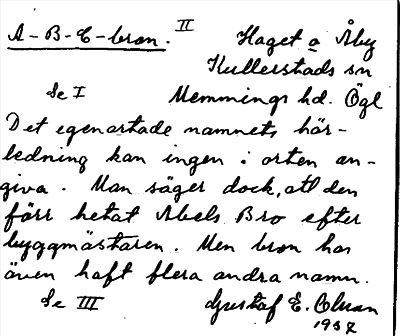 A-B-C-bron. II Haget o Åby
Kullerstads sn
Se I Memmings hd. Ögl
Det egenartade namnets här-
ledning kan ingen i orten an-
giva. Man säger dock, att den
förr hetat Abels Bro efter
byggmästaren. Men bron har
även haft flera andra namn.
Se III Gustaf E. Olman
1937